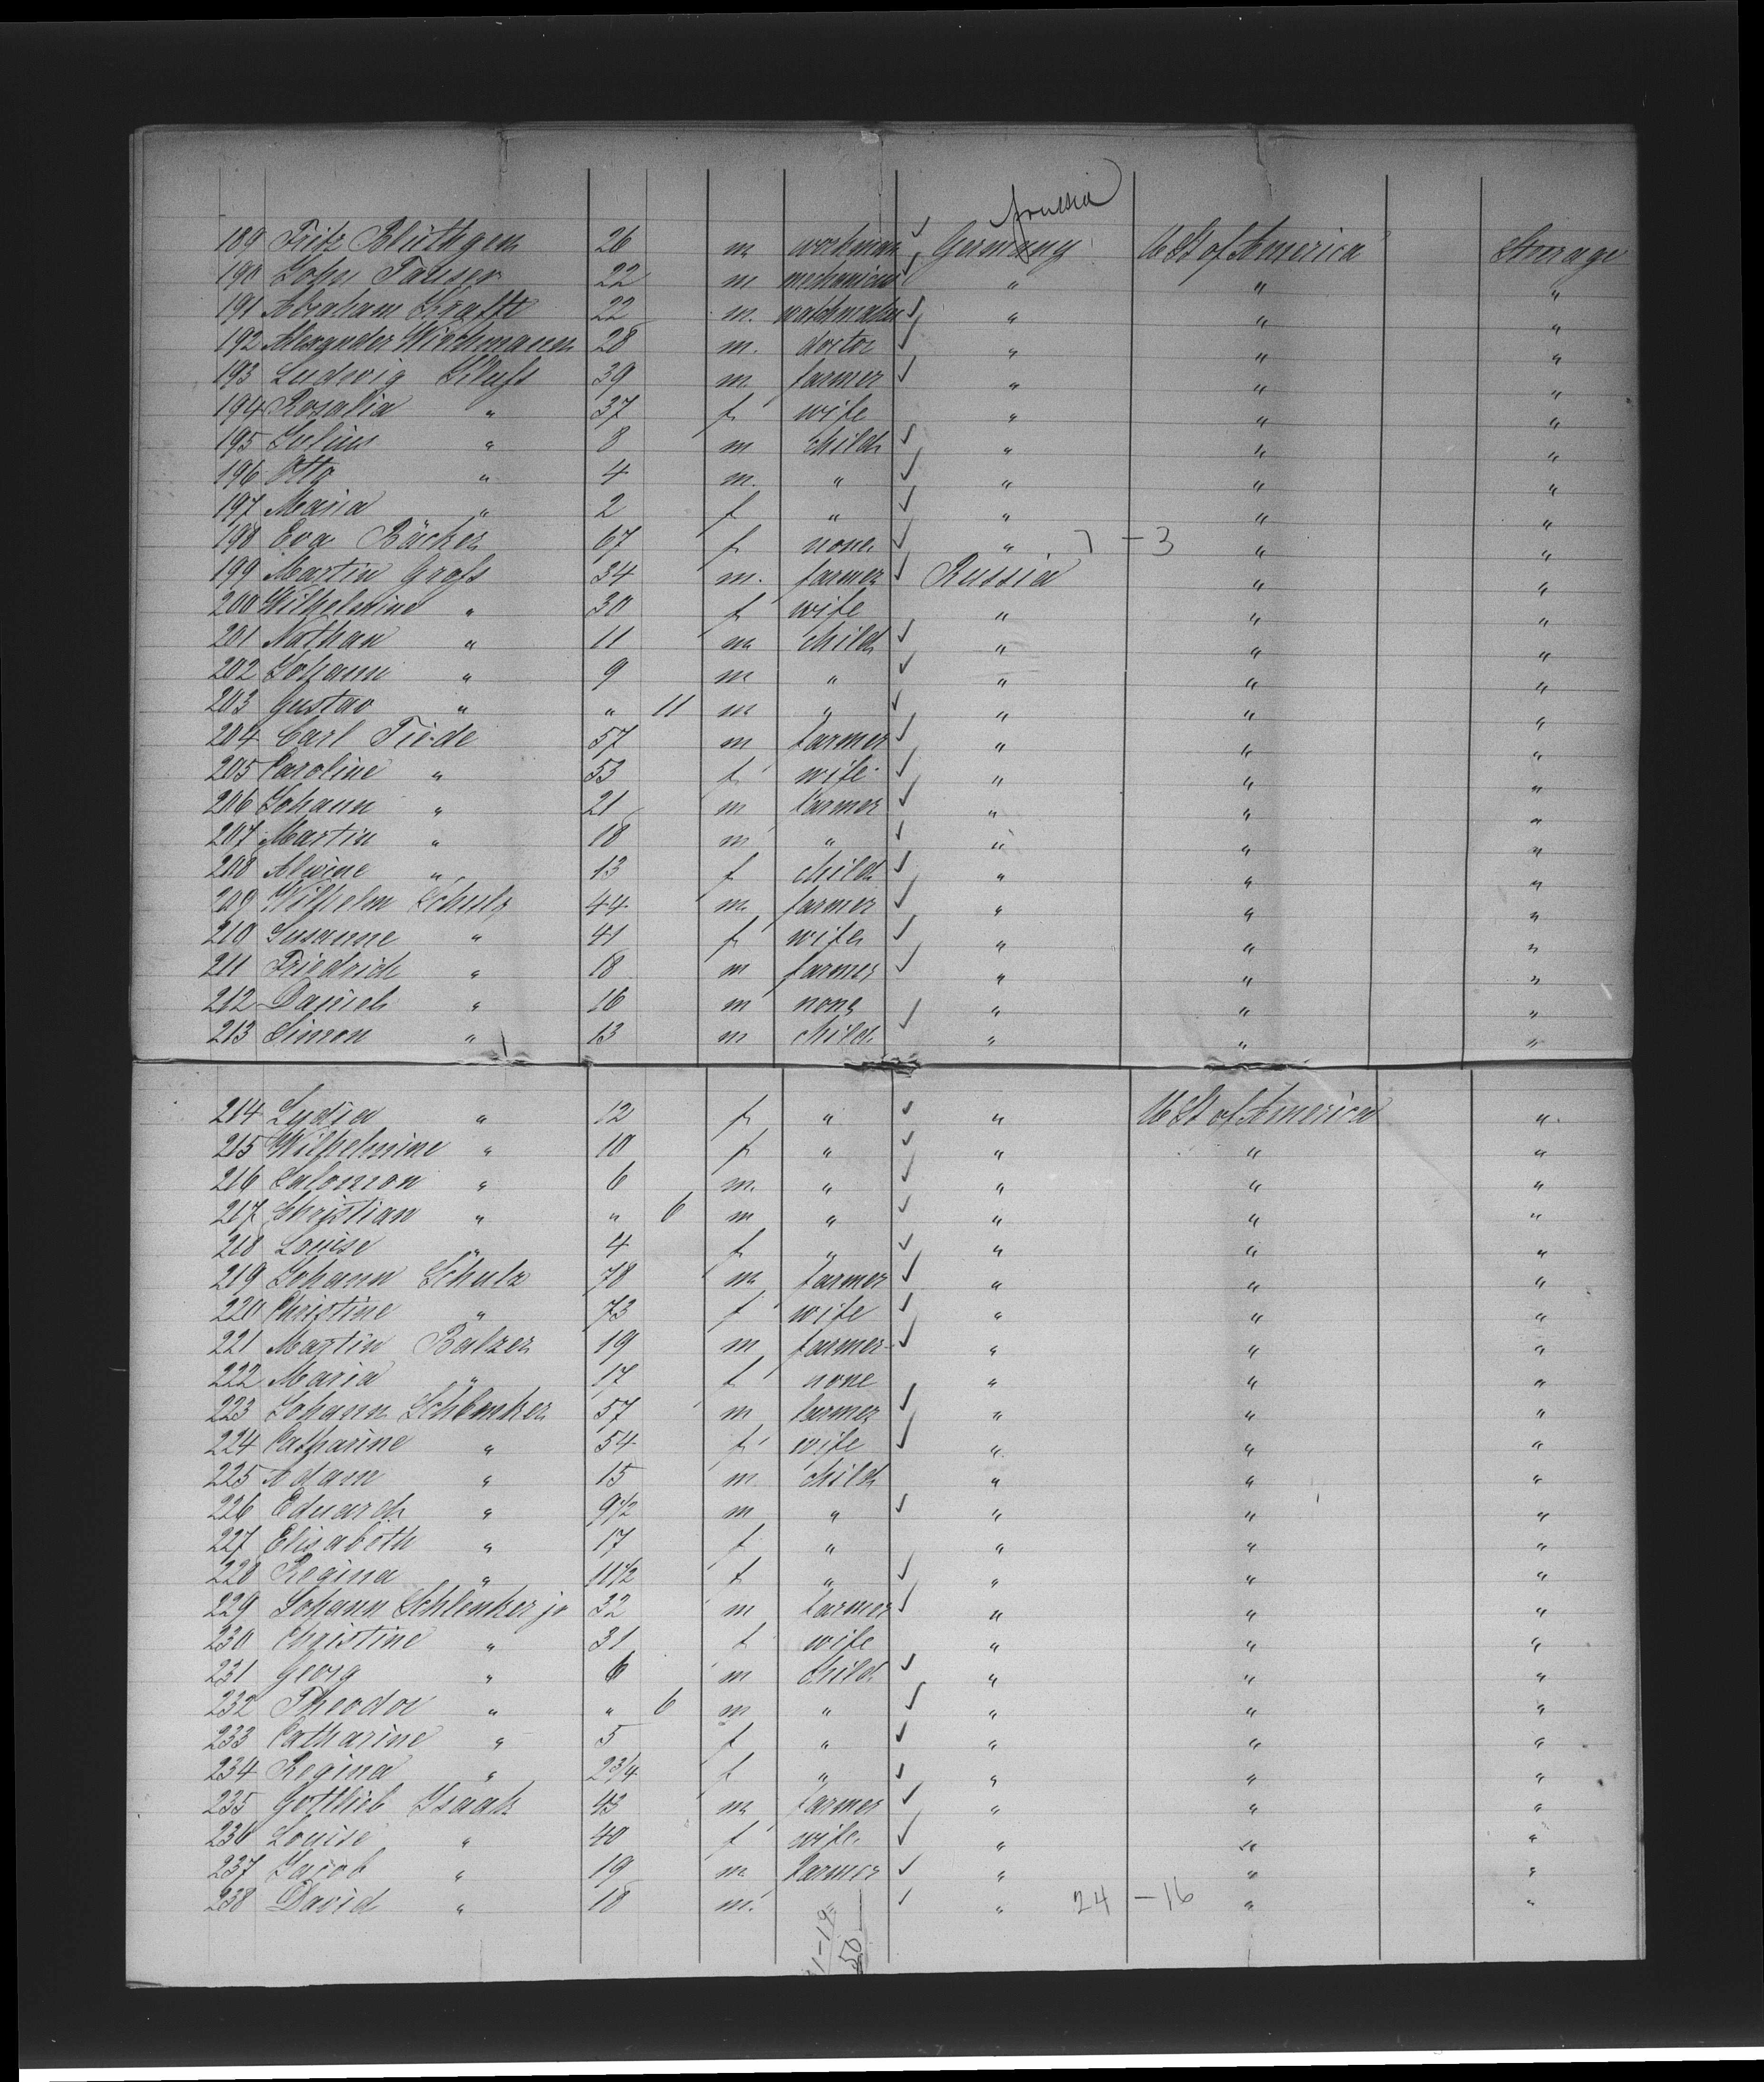 Prussia
189 Fritz Blüthgen 26 m workman ✓ Germany U St of America Steerage
190 John Tauser 22 m mechanicus ✓ " " "
191 Abraham Krafft 22 m. watchmaker ✓ " " "
192 Alexander Wiechmann 28 m. doctor ✓ " " "
193 Ludwig Klufs 39 m farmer ✓ " " "
194 Rosalia " 37 f wife " " "
195 Julius " 8 m child ✓ " " "
196 Otto " 4 m. " ✓ " " "
197 Maria " 2 f " ✓ " " "
198 Eva Bäcker 67 f none ✓ " 7 - 3 " "
199 Martin Grofs 34 m. farmer ✓ Russia " "
200 Wilhelmine " 30 f wife " " "
201 Nathan " 11 m child ✓ " " "
202 Johann " 9 m " ✓ " " "
203 Gustav " " 11 m " ✓ " " "
204 Carl Tiede 57 m farmer ✓ " " "
205 Caroline " 53 f wife ✓ " " "
206 Johann " 21 m farmer ✓ " " "
207 Martin " 18 m " ✓ " " "
208 Alwine " 13 f child ✓ " " "
209 Wilhelm Schulz 44 m. farmer ✓ " " "
210 Susanne " 41 f wife ✓ " " "
211 Friedrich " 18 m farmer ✓ " " "
212 Daniel " 16 m none " " "
213 Simon " 13 m child ✓ " " "
214 Lydia " 12 f " ✓ " U St of America "
215 Wilhelmine " 10 f " ✓ " " "
216 Salomon " 6 m. " ✓ " " "
217 Christian " " 6 m " ✓ " " "
218 Louise " 4 f " ✓ " " "
219 Johann Schulz 78 m farmer ✓ " " "
220 Christine " 73 f wife ✓ " " "
221 Martin Balzer 19 m farmer ✓ " " "
222 Maria " 17 f none " " "
223 Johann Schlenker 57 m farmer ✓ " " "
224 Catharine " 54 f wife ✓ " " "
225 Adam " 15 m child " " "
226 Eduard " 9 1/2 m " ✓ " " "
227 Elisabeth " 17 f " " " "
228 Regina " 11 1/2 f " ✓ " " "
229 Johann Schlenker jr 32 m farmer ✓ " " "
230 Christine " 31 f wife " " "
231 Georg " 6 m child ✓ " " "
232 Theodor " " 6 m " ✓ " " "
233 Catharine " 5 f " ✓ " " "
234 Regina " 2 3/4 f " ✓ " " "
235 Gottlieb Isaak 43 m farmer ✓ " " "
236 Louise " 40 f wife ✓ " " "
237 Jacob " 19 m farmer ✓ " " "
238 David " 18 m. " ✓ " 24 - 16 " "
50